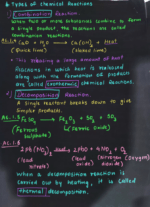 6 Types of Chemical Reactions
1) Combination Reaction.
When two or more substances combine to form
a single product, the reactions are called
combination reactions.
AC.1.4 CaO + H₂O → Ca(OH)₂ + Heat
(Quick lime) (slaked lime)
* This releases a large amount of heat
Reactions in which heat is released
along with the formation of products
are called exothermic chemical reactions.
2) Decomposition Reaction.
A single reactant breaks down to give
simpler products.
2FeSO₄ → Fe₂O₃ + SO₂ + SO₃
(Ferrous sulphate) (Ferric oxide)
2Pb(NO₃)₂ → 2PbO + 4NO₂ + O₂
(lead nitrate) (lead oxide) (nitrogen dioxide) (oxygen)
When a decomposition reaction is
carried out by heating, it is called
thermal decomposition.